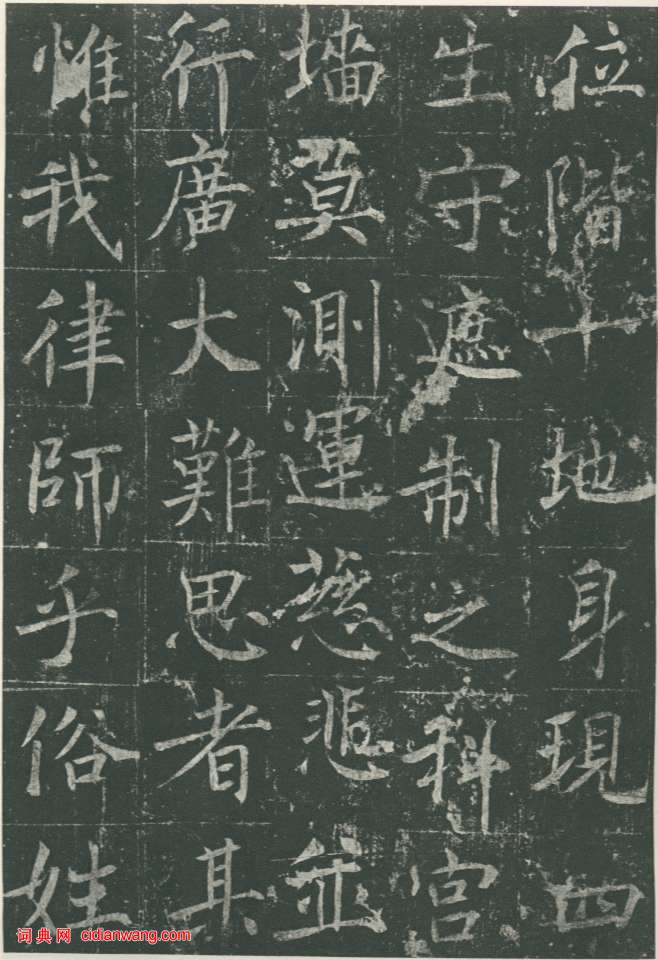 位階十地身現四
生守遮制之科宮
墻莫測運慈悲並
行廣大難思者其
惟我律師乎俗姓
词典网 cidianwang.com